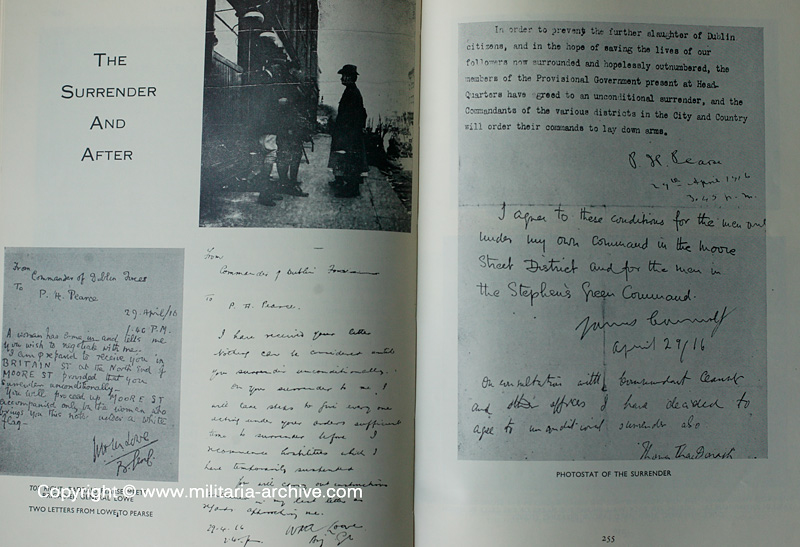 THE
SURRENDER
AND
AFTER
From
Commander of Dublin Forces
To
P. H. Pearce
29 April/16
1.40 P.M.
A woman has come in and tells me
you wish to negotiate with me.
I am prepared to receive you in
BRITAIN ST at the North End of
MOORE ST provided that you
surrender unconditionally—
You will proceed up MOORE ST
accompanied only by the woman who
brings you this note under a white
flag—
W M Lowe
B. Genl.
TWO LETTERS FROM LOWE TO PEARSE
From
Commander of Dublin Forces
To P. H. Pearce.
I have received your letter
Nothing can be considered until
you surrender unconditionally.
On your surrender to me I
will take steps to give every one
acting under your orders sufficient
time to surrender before I
recommence hostilities which I
have temporarily suspended
You will carry out instructions
in my last letter as
regards approaching me.
29.4.16
Lowe
In order to prevent the further slaughter of Dublin
citizens, and in the hope of saving the lives of our
followers now surrounded and hopelessly outnumbered, the
members of the Provisional Government present at Head-
Quarters have agreed to an unconditional surrender, and the
Commandants of the various districts in the City and Country
will order their commands to lay down arms.
P. H. Pearse
29th April 1916
3.45 p.m.
I agree to these conditions for the men only
under my own Command in the Moore
Street District and for the men in
the Stephen's Green Command.
James Connolly
April 29/16
On consultation with Commandant Ceannt
and other officers I have decided to
agree to unconditional surrender also
Thomas MacDonagh
PHOTOSTAT OF THE SURRENDER
255
Copyright © www.militaria-archive.com